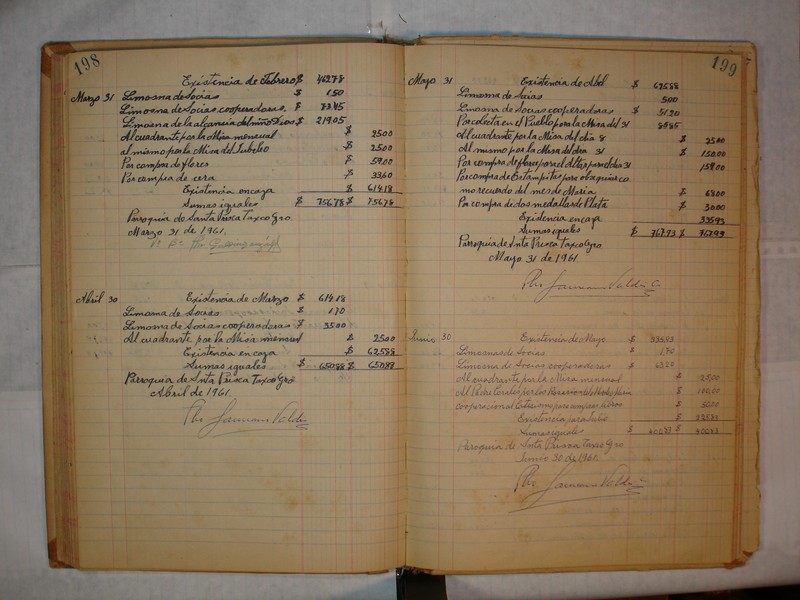 198
Existencia de Febrero $ 462.78
Marzo 31 Limosna de Socias $ 1.50
Limosna de Socias cooperadoras. $ 73.45
Limosna de la alcancía del niño Dios $ 219.05
Al cuadrante por la Misa mensual $ 25.00
al mismo por la Misa del Jubileo $ 25.00
Por compra de flores $ 59.00
Por compra de cera $ 33.60
Existencia en caja $ 614.18
Sumas iguales $ 756.78 $ 756.78
Parroquia de Santa Prisca Taxco Gro.
Marzo 31 de 1961.
Abril 30 Existencia de Marzo $ 614.18
Limosna de Socias $ 1.70
Limosna de Socias cooperadoras $ 35.00
Al cuadrante por la Misa mensual $ 25.00
Existencia en caja $ 625.88
Sumas iguales $ 650.88 $ 650.88
Parroquia de Snta Prisca Taxco Gro
Abril de 1961.
199
Mayo 31 Existencia de Abril $ 625.88
Limosna de Socias 5.00
Limosna de Socias cooperadoras $ 51.20
Por colecta en el Pueblo para la Misa del 31 85.85
Al cuadrante por la Misa del día 8 $ 25.00
Al mismo por la Misa del día 31 $ 150.00
Por compra de flores para el Altar para el día 31 159.00
Por compra de Estampitas para obsequiar co
mo recuerdo del mes de María $ 68.00
Por compra de dos medallas de Plata $ 30.00
Existencia en caja 335.93
Sumas iguales $ 767.93 $ 767.93
Parroquia de Snta Prisca Taxco Gro
Mayo 31 de 1961
Junio 30 Existencia de Mayo $ 335.93
Limosnas de Socias $ 1.70
Limosna de Socios cooperadores $
Al cuadrante por la Misa mensual $ 25.00
$ 100.00
$ 50.00
Existencia $
Sumas iguales $ $
Parroquia de Snta Prisca Taxco Gro
Junio 30 de 1961.